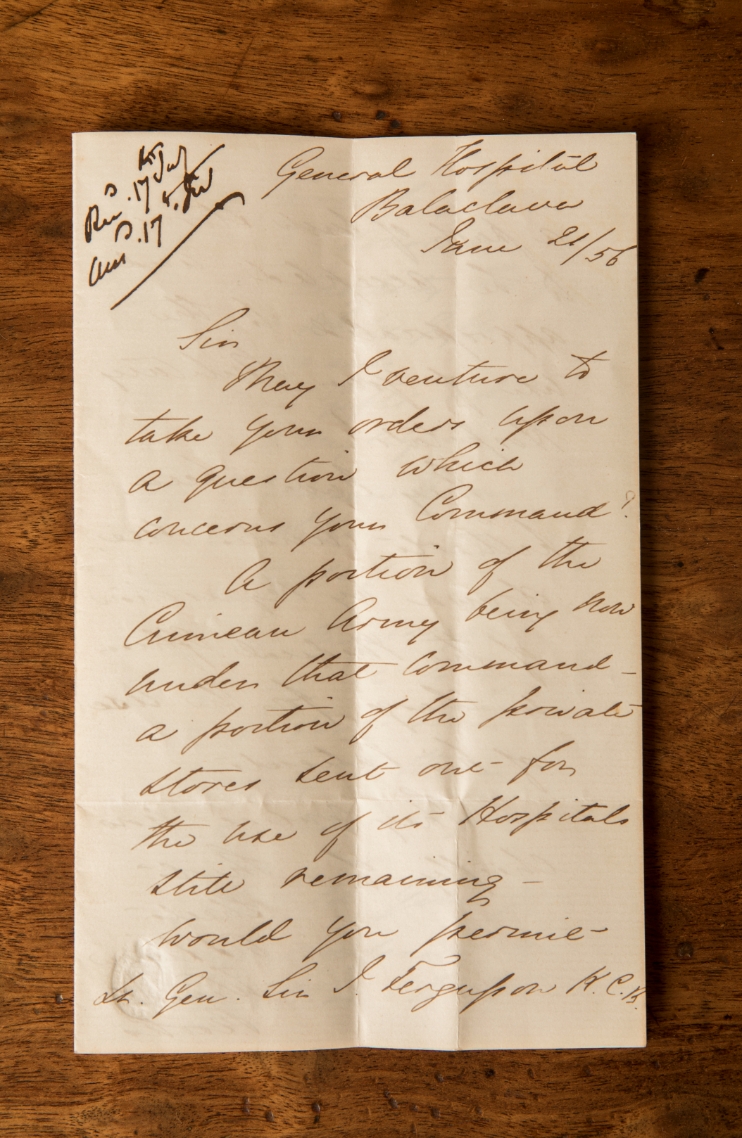 Recd. 17 July
Ans d. 17
General Hospital
Balaclava
June 21/56
Sir
May I venture to
take your orders upon
a question which
concerns your Command?
A portion of the
Crimean Army being now
under that Command -
a portion of the private
stores sent out for
the use of its Hospitals
still remaining -
would you permit
Lt. Gen. Sir J. Fergusson K.C.B.